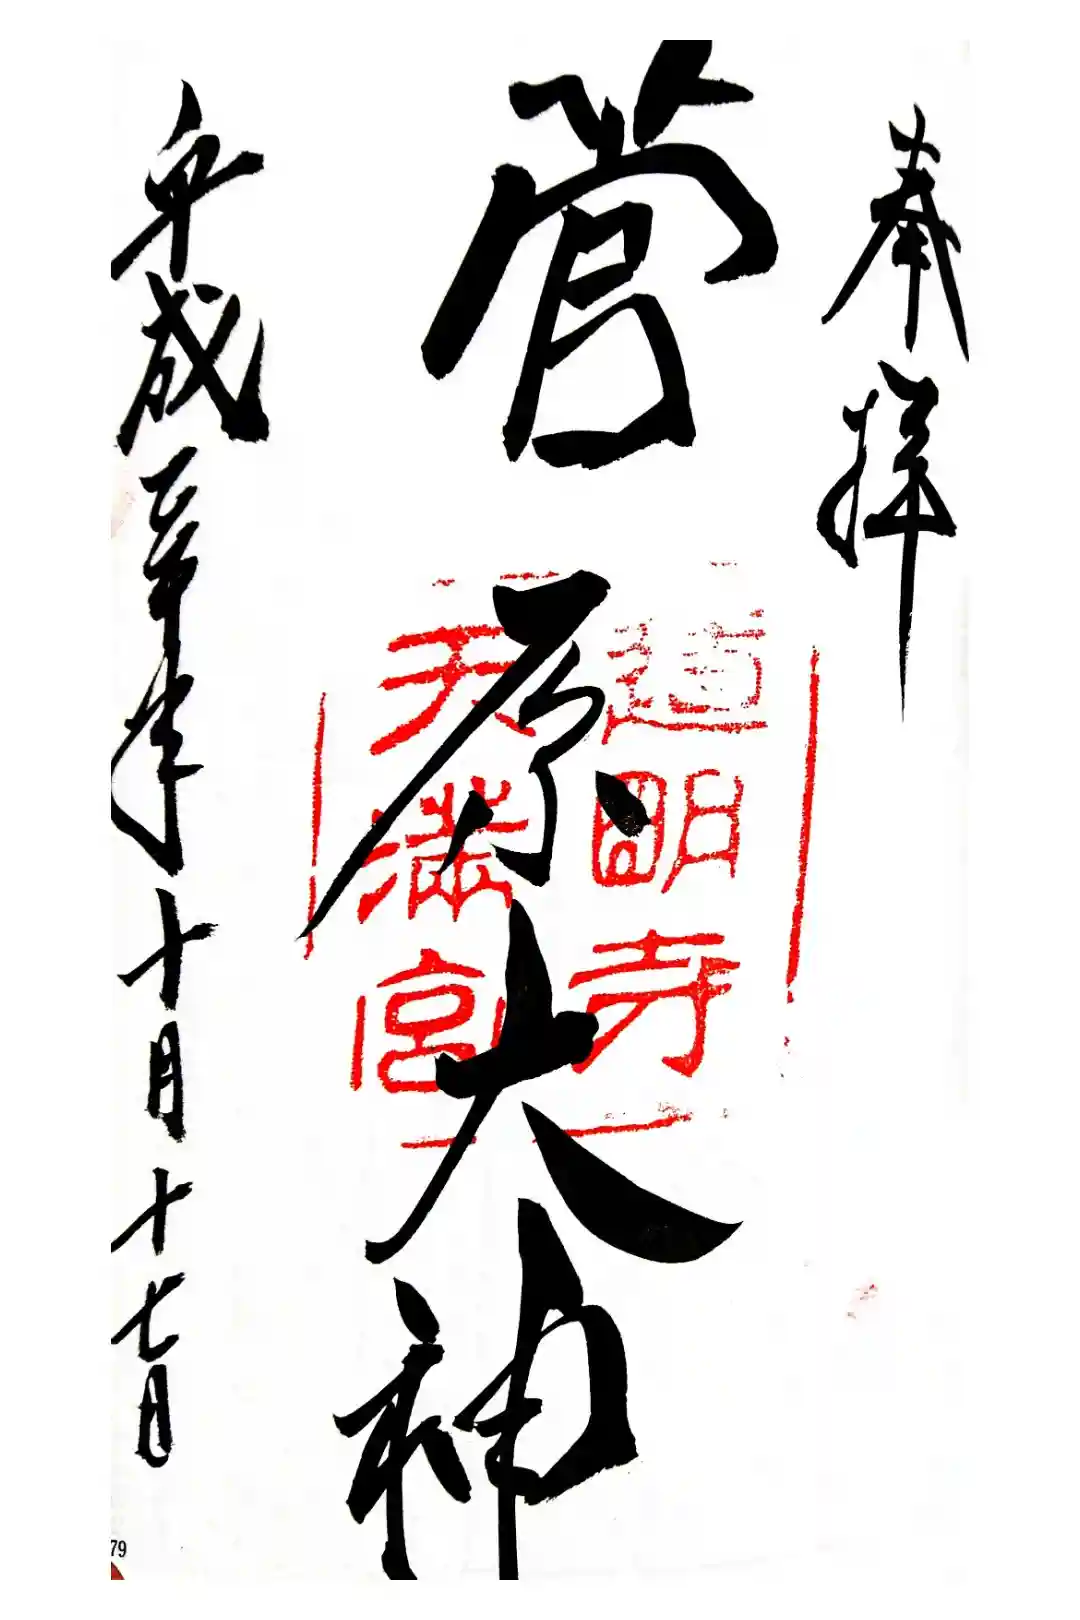 奉拝
菅原大神
道明寺
天満宮
平成年十月十七日
79